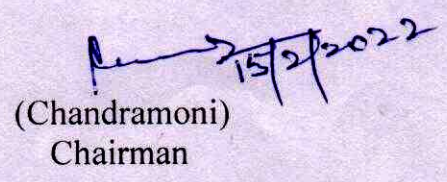 15/2/2022
(Chandramoni)
Chairman